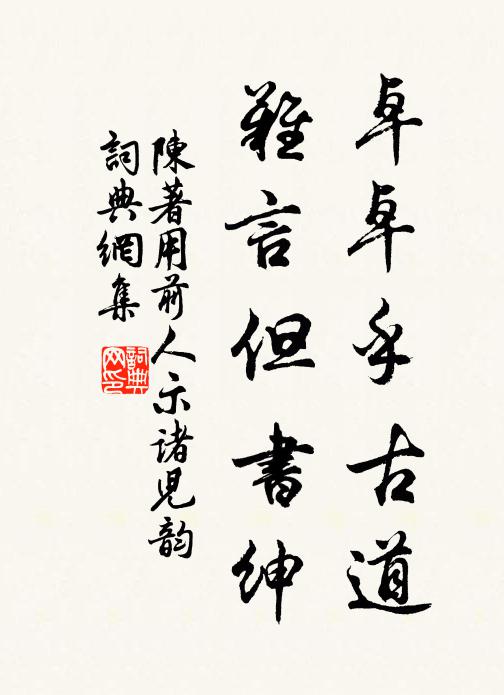 卓卓乎古道
難言但書紳
陳著用前人示諸兒韵
詞典網集
詞典网印